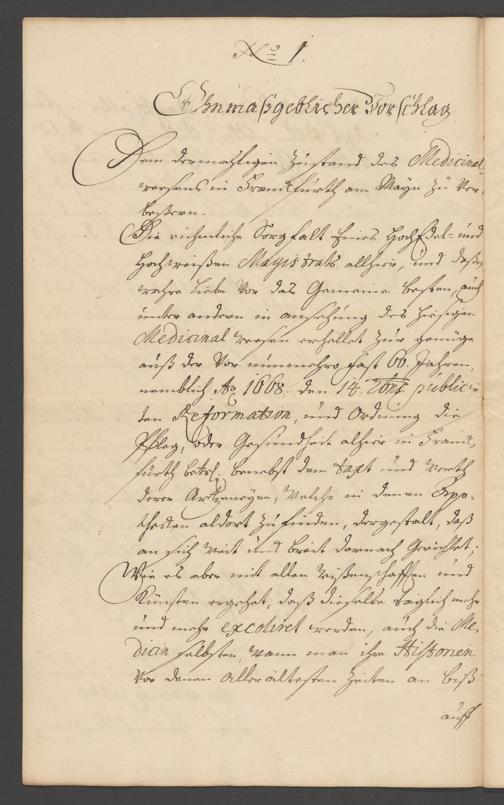 No 1.
Ohnmaßgeblicher Vorschlag
Dem dermahligen Zustand des Medicinal
weesens in Franckfurth am Mayn zu Ver-
beßern.
Die rühmliche Sorgfalt Eines HochEdel- und
Hochweißen Magistrats allhier, und deßen
wahre Liebe vor das Gemeine Besten, auch
unter andern in ansehung des hiesigen
Medicinal weesen erhellet zur genüge
auß der Vor nunmehro fast 60. Jahren,
nemblich Ao 1668. den 14. publicir-
ten Reformation, und Ordnung die
Pfleg, oder Gesundheit alhier in Franck-
furth betrl. benebst dem Taxt und Werth
derer Artzeneyen, Welche in denen Apo-
thecken aldort zu finden, dergestalt, daß
an sich Weit und breit darnach Gerichtet;
Wie es aber mit allen Wißenschafften und
Künsten ergehet, daß dieselbe täglich mehr
und mehr excoliret werden, auch die Me-
dicin selbsten, wann man ihre Historien
Vor denen allerältesten Zeiten an biß
auff